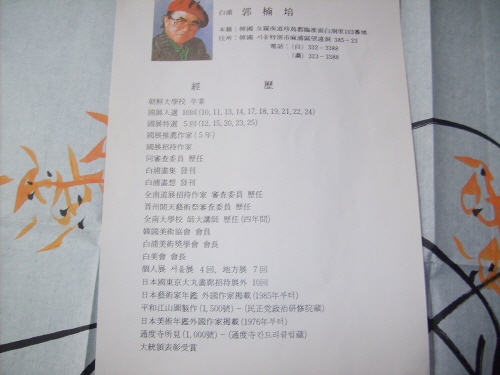 白浦 郭楠培
本籍 : 韓國 全羅南道珍島郡臨淮面白洞里103番地
住所 : 韓國 서울特別市麻浦區望遠洞 385-23
電話 : (自) 332-3388
(畵) 323-3388
經 歷
朝鮮大學校 卒業
國展入選 10回 (10, 11, 13, 14, 17, 18, 19, 21, 22, 24)
國展特選 5回 (12, 15, 20, 23, 25)
國展推薦作家 (5年)
國展招待作家
同審査委員 歷任
白浦畵集 發刊
白浦畵想 發刊
全南道展招待作家 審査委員 歷任
晋州開天藝術祭審査委員 歷任
全南大學校 師大講師 歷任 (四年間)
韓國美術協會 會員
白浦美術奬學會 會長
白美會 會長
個人展 서울展 4回, 地方展 7回
日本國東京大丸畵廊招待展外 10回
日本藝術家年鑑 外國作家揭載 (1985年부터)
平和江山圖製作 (1,500號) - (民正党政治硏修院藏)
日本美術年鑑外國作家揭載 (1976年부터)
通度寺所見 (1,000號) - (通度寺칸트리클럽藏)
大統領表彰受賞